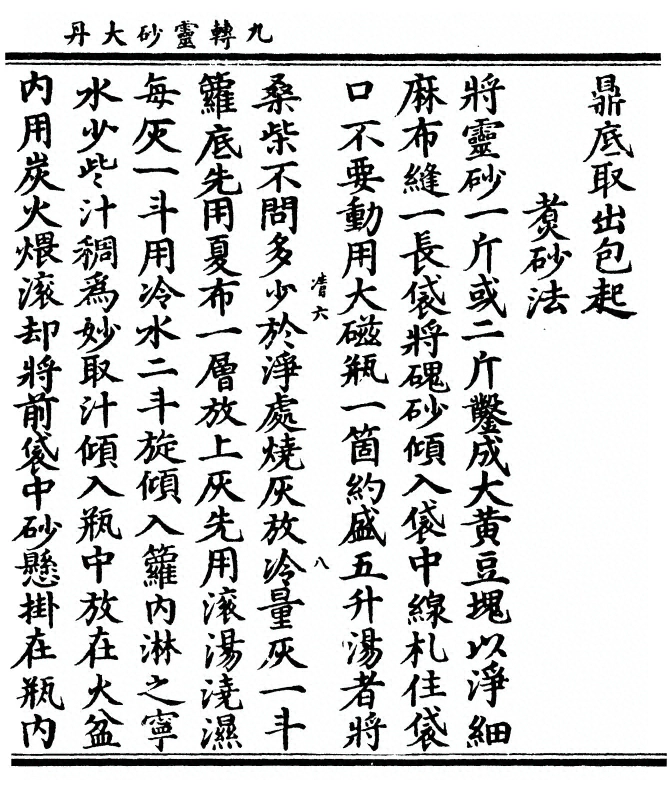 九轉靈砂大丹
鼎底取出包起
煑砂法
將靈砂一斤或二斤鑿成大黄豆塊以淨細
麻布縫一長袋將磈砂傾入袋中線札住袋
口不要動用大磁瓶一箇約盛五升湯者將
清六
八
桑柴不問多少於淨處燒灰放冷量灰一斗
籮底先用夏布一層放上灰先用滚湯澆濕
每灰一斗用冷水二斗旋傾入籮内淋之寧
水少些汁稠爲妙取汁傾入瓶中放在火盆
内用炭火煨滚却將前袋中砂懸掛在瓶内